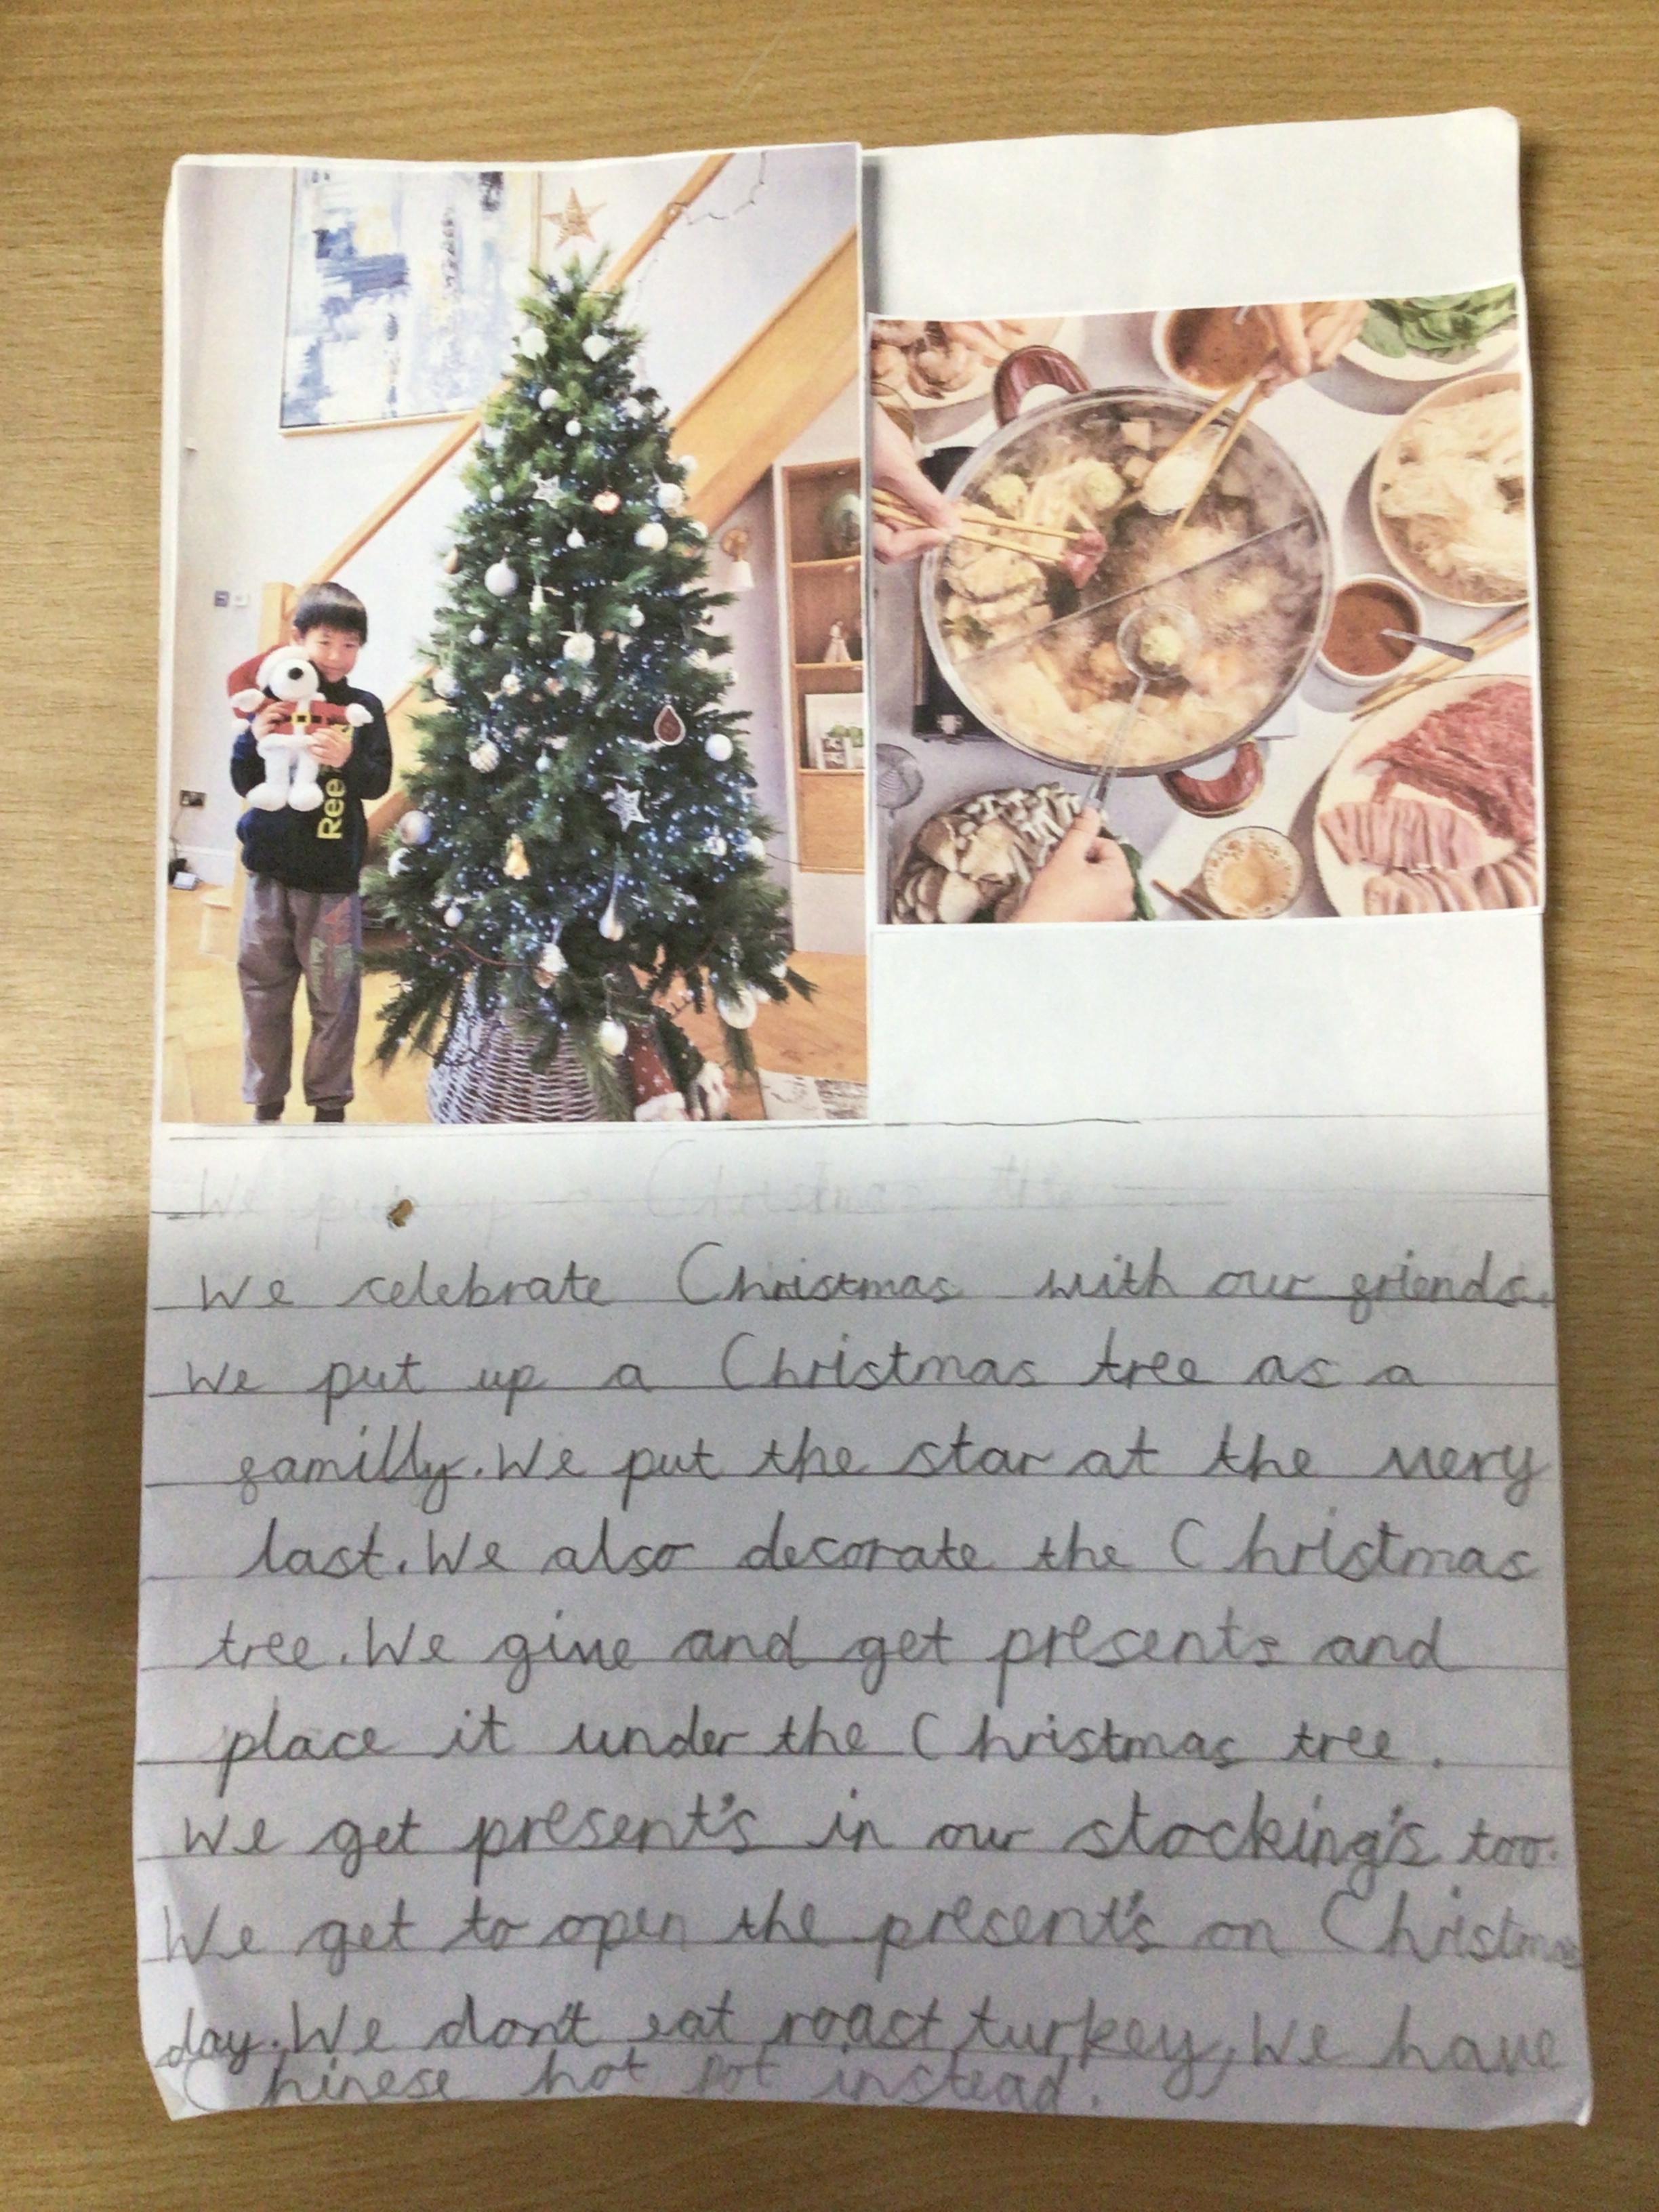 Ree
We put up a Christmas tree
We celebrate Christmas with our friends.
We put up a Christmas tree as a
familly. We put the star at the very
last. We also decorate the Christmas
tree. We give and get presents and
place it under the Christmas tree.
We get present's in our stocking's too.
We get to open the present's on Christmas
day. We don't eat roast turkey, We have
Chinese hot pot instead.